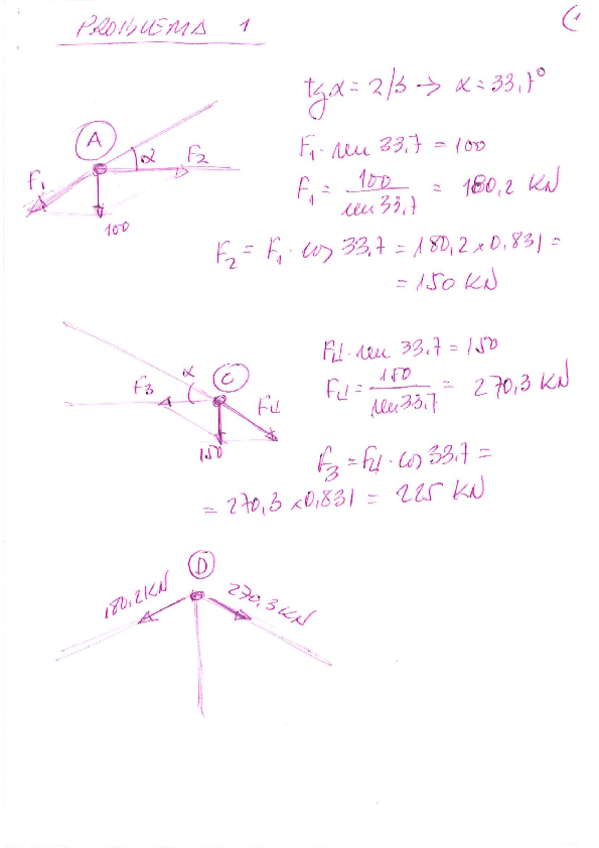 PROBLEMA 1
(1
tgα = 2/3 → α = 33,7°
A
α
F2
F1
100
F1 · sen 33,7 = 100
F1 = 100 / sen 33,7 = 180,2 KN
F2 = F1 · cos 33,7 = 180,2 x 0,831 =
= 150 KN
α
C
F3
F4
150
F4 · sen 33,7 = 150
F4 = 150 / sen 33,7 = 270,3 KN
F3 = F4 · cos 33,7 =
= 270,3 x 0,831 = 225 KN
D
180,2 KN
270,3 KN